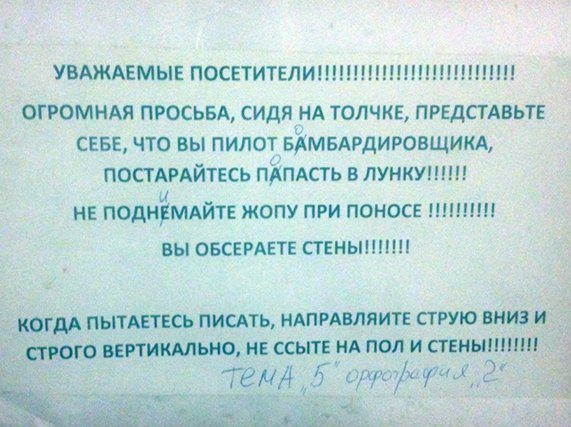 УВАЖАЕМЫЕ ПОСЕТИТЕЛИ!!!!!!!!!!!!!!!!!!!!!!!!!!!!
ОГРОМНАЯ ПРОСЬБА, СИДЯ НА ТОЛЧКЕ, ПРЕДСТАВЬТЕ
о
СЕБЕ, ЧТО ВЫ ПИЛОТ БАМБАРДИРОВЩИКА,
о
ПОСТАРАЙТЕСЬ ПАПАСТЬ В ЛУНКУ!!!!!!
и
НЕ ПОДНЕМАЙТЕ ЖОПУ ПРИ ПОНОСЕ !!!!!!!!!!
ВЫ ОБСЕРАЕТЕ СТЕНЫ!!!!!!!
КОГДА ПЫТАЕТЕСЬ ПИСАТЬ, НАПРАВЛЯИТЕ СТРУЮ ВНИЗ И
СТРОГО ВЕРТИКАЛЬНО, НЕ ССЫТЕ НА ПОЛ И СТЕНЫ!!!!!!!!
ТЕМА „5" орфография „2"